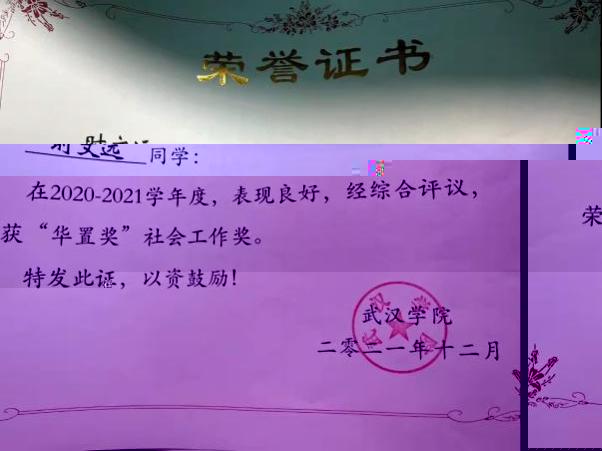 荣誉证书
同学：
在2020-2021学年度，表现良好，经综合评议，
获“华置奖”社会工作奖。
特发此证，以资鼓励！
武汉学院
二零二一年十二月
荣